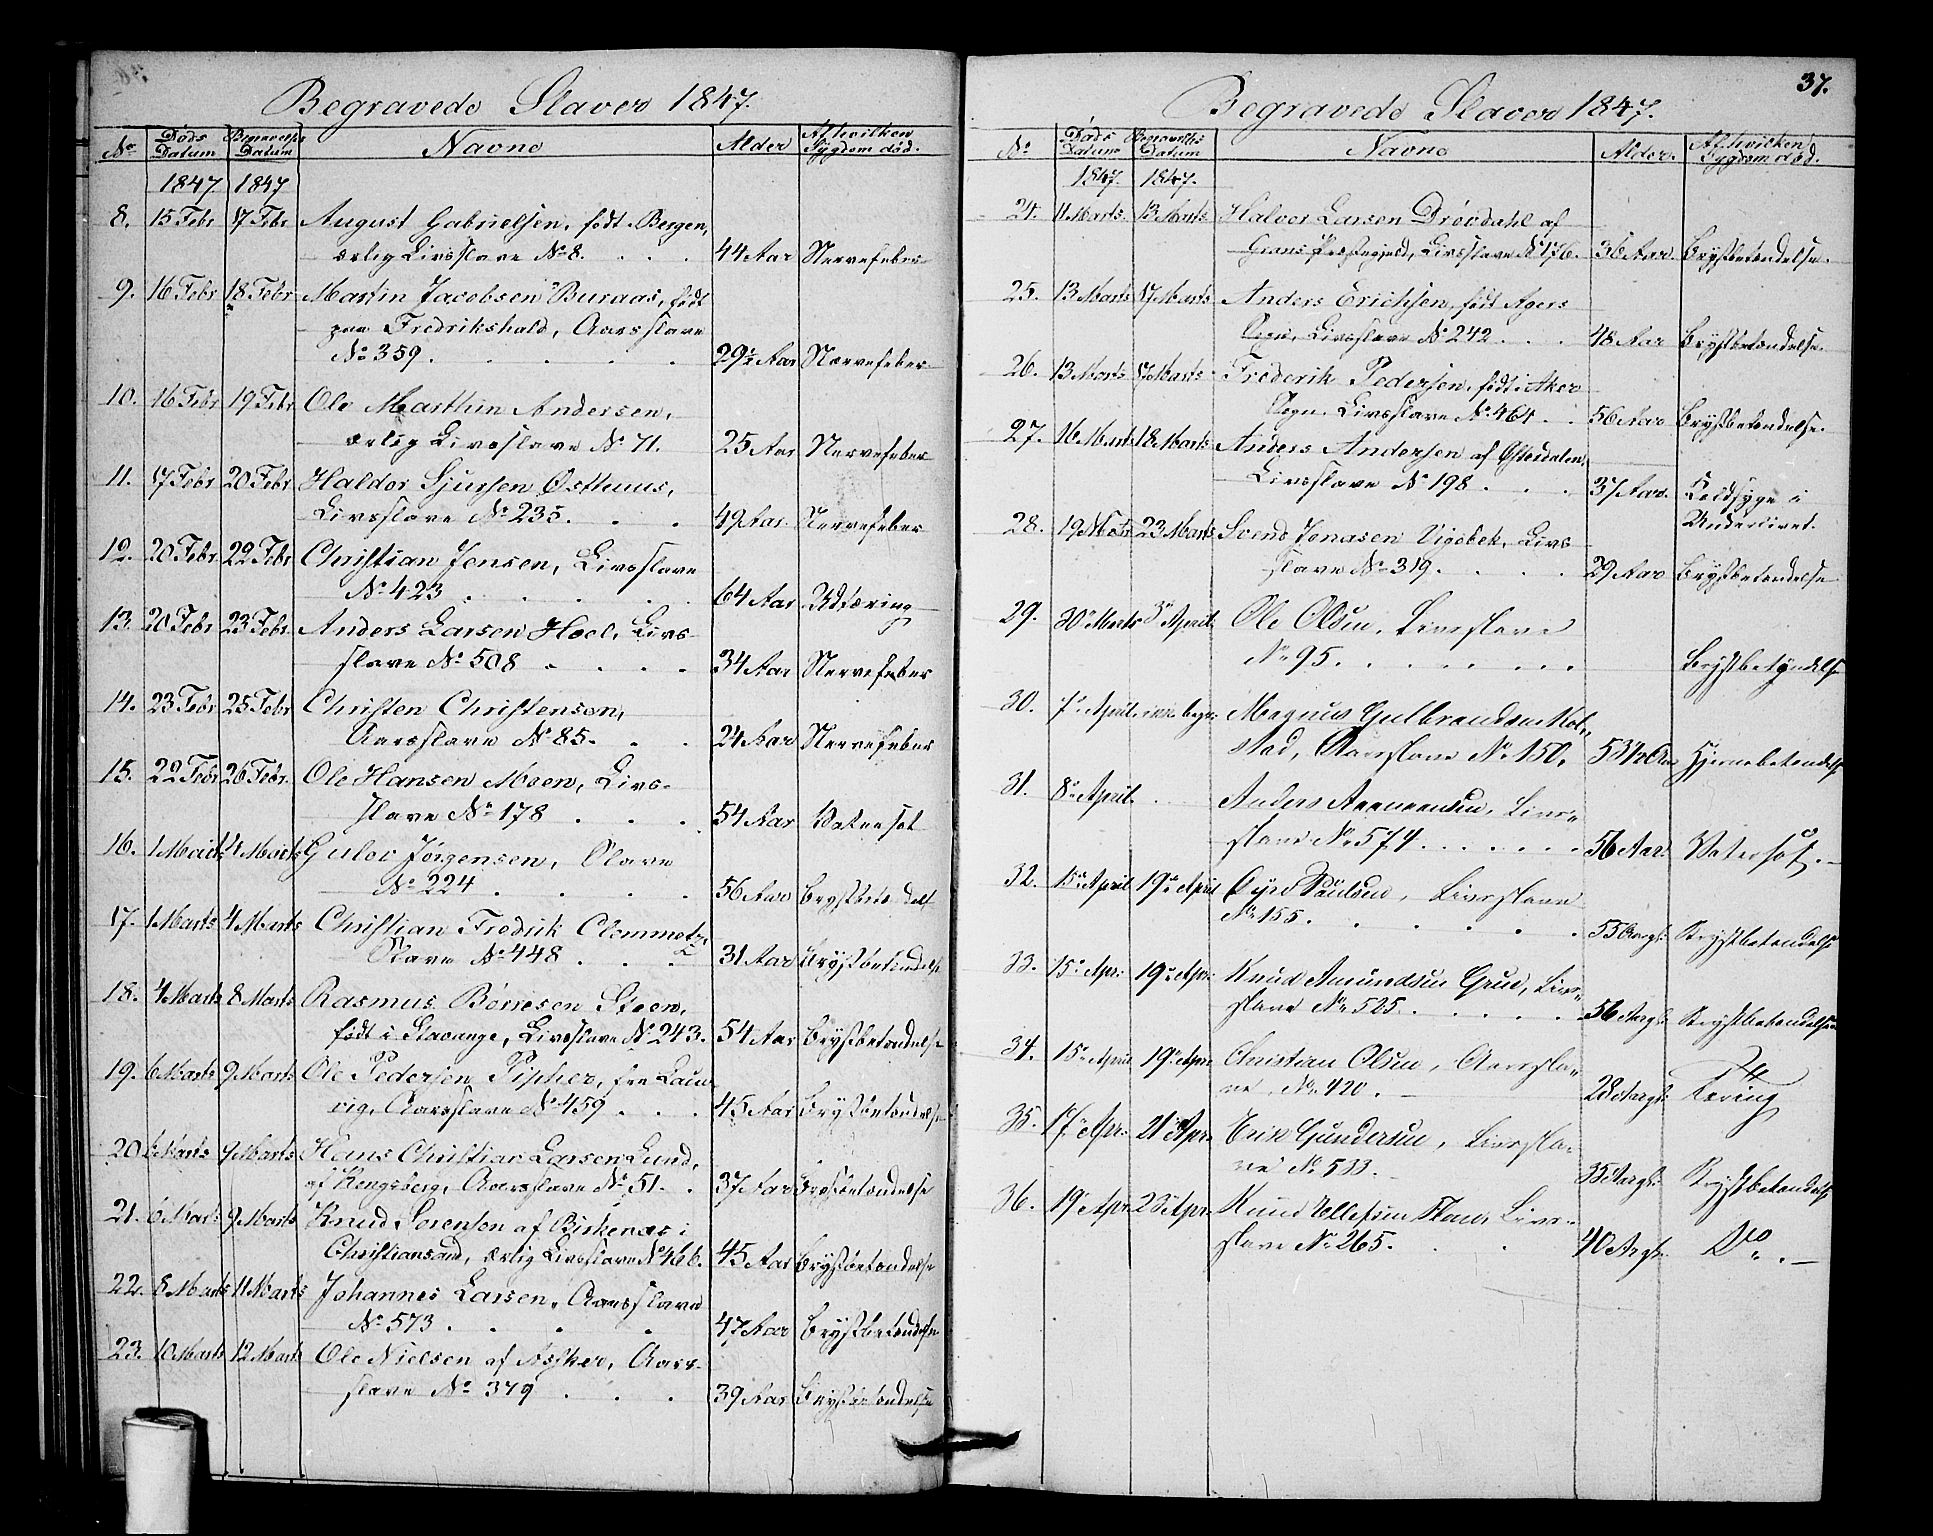 Begravede Slaver 1847.
No Døds Datum Begravelses Datum Navne Alder Af hvilken Sygdom død.
1847 1847
8. 15 Febr 17 Febr August Gabrielsen, født i Bergen,
ærlig Livsslave No 8. . . . 44 Aar Nervefeber
9. 16 Febr 18 Febr Martin Jacobsen Buraas, født
paa Fredrikshald, Aarsslave
No 359. . . . . . 29½ Aar Nervefeber
10. 16 Febr 19 Febr Ole Marthin Andersen,
ærlig Livsslave No 71. 25 Aar Nervefeber
11. 17 Febr 20 Febr Haldor Sjursen Østhuus,
Livsslave No 235. . . . 49 Aar. Nervefeber
12. 20 Febr 22 Febr Christian Jensen, Livsslave
No 423 . . . . . 64 Aar. Udtæring
13. 20 Febr 23 Febr Anders Larsen Hoel, Livs-
slave No 508 . . . . 34 Aar Nervefeber
14. 23 Febr 25 Febr Christen Christensen,
Aarsslave No 85. . . 24 Aar Nervefeber
15. 22 Febr 26 Febr. Ole Hansen Moen, Livs-
slave No 178 . . . 54 Aar Vatersot
16. 1 Marts 4 Marts Gulov Jørgensen, Slave
No 224 . . . . 56 Aar Brystbetændelse
17. 1 Marts 4 Marts Christian Fredrik Clemmetz
Slave No 448 . . . 31 Aar Brystbetændelse
18. 4 Marts 8 Marts Rasmus Børresen Steen,
født i Stavanger, Livsslave No 243. 54 Aar Brystbetændelse
19. 6 Marts 9 Marts Ole Pedersen Pipher, fra Laur-
vig, Aarsslave No 459 . . . 45 Aar Brystbetændelse
20. 6 Marts 9 Marts Hans Christian Larsen Lund,
af Kongsberg, Aarsslave No 51. . 37 Aar Brystbetændelse
21. 6 Marts 9 Marts Knud Sørensen af Birkenæs i
Christiansand, ærlig Livsslave No 466. 45 Aar Brystbetændelse
22. 8 Marts 11 Marts Johannes Larsen, Aarsslave
No 573 . . . . 47 Aar Brystbetændelse
23. 10 Marts 12 Marts Ole Nielsen af Asker, Aars-
slave No 379 . . . 39 Aar Brystbetændelse
37.
Begravede Slaver 1847.
No Døds Datum Begravelses Datum Navne Alder. Af hvilken Sygdom død.
1847. 1847.
24. 11 Marts 13 Marts Halvor Larsen Drøvdahl af
Grans Præstegjeld, Livsslave No 176. 36 Aar Brystbetændelse.
25. 13 Marts 17 Marts Anders Erichsen, født Agers
Sogn, Livsslave No 242 . . . 48 Aar Brystbetændelse.
26. 13 Marts 17 Marts Frederik Pedersen, født i Aker
Sogn. Livsslave No 464 . . 56 Aar Brystbetændelse.
27. 16 Marts 18 Marts Anders Andersen af Østerdalen,
Livsslave No 198 . . . 37 Aar. Koldsyge i
Underlivet.
28. 19 Marts 23 Marts Svend Jonasen Vigebek, Livs
slave No 319. . . . . 29 Aar Brystbetændelse
29. 30 Marts 3 April. Ole Olsen, Livsslave
No 95. . . . . . . . Brystbetændelse
30. 7 April ikke begr: Magnus Gulbrandsen Kol-
stad, Aarsslave No 150. 53½ Aar Hjernebetændelse
31. 8 April. . Anders Aamunsen, Livs-
slave No 574. . . . . . 56 Aar. Vatersot. -
32. 15 April 19 April Paulsen, Livsslave
No 155. . . . . . 55 Aargl: Brystbetændelse
33. 15 Apr: 19 Apr: Knud Amundsen Grue, Livs-
slave No 525. . . . . . 56 Aargl: Brystbetændelse
34. 15 April 19 Apr Christian Olsen, Aarssla-
ve, No 420. - 28 Aargl: Tæring
35. 17 Apr: 21 Apr Erik Gundersen, Livssla-
ve No 533. 35 Aargl: Brystbetændelse
36. 19 Apr 23 Apr. Knud Ellefsen Moen, Livs-
slave No 265. . . 40 Aargl: Do . -